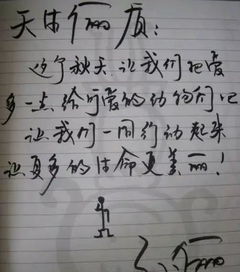 天
这个秋天,让我们把爱
多一点给可爱的动物们吧
让我们一同行动起来
让更多的 更美丽!